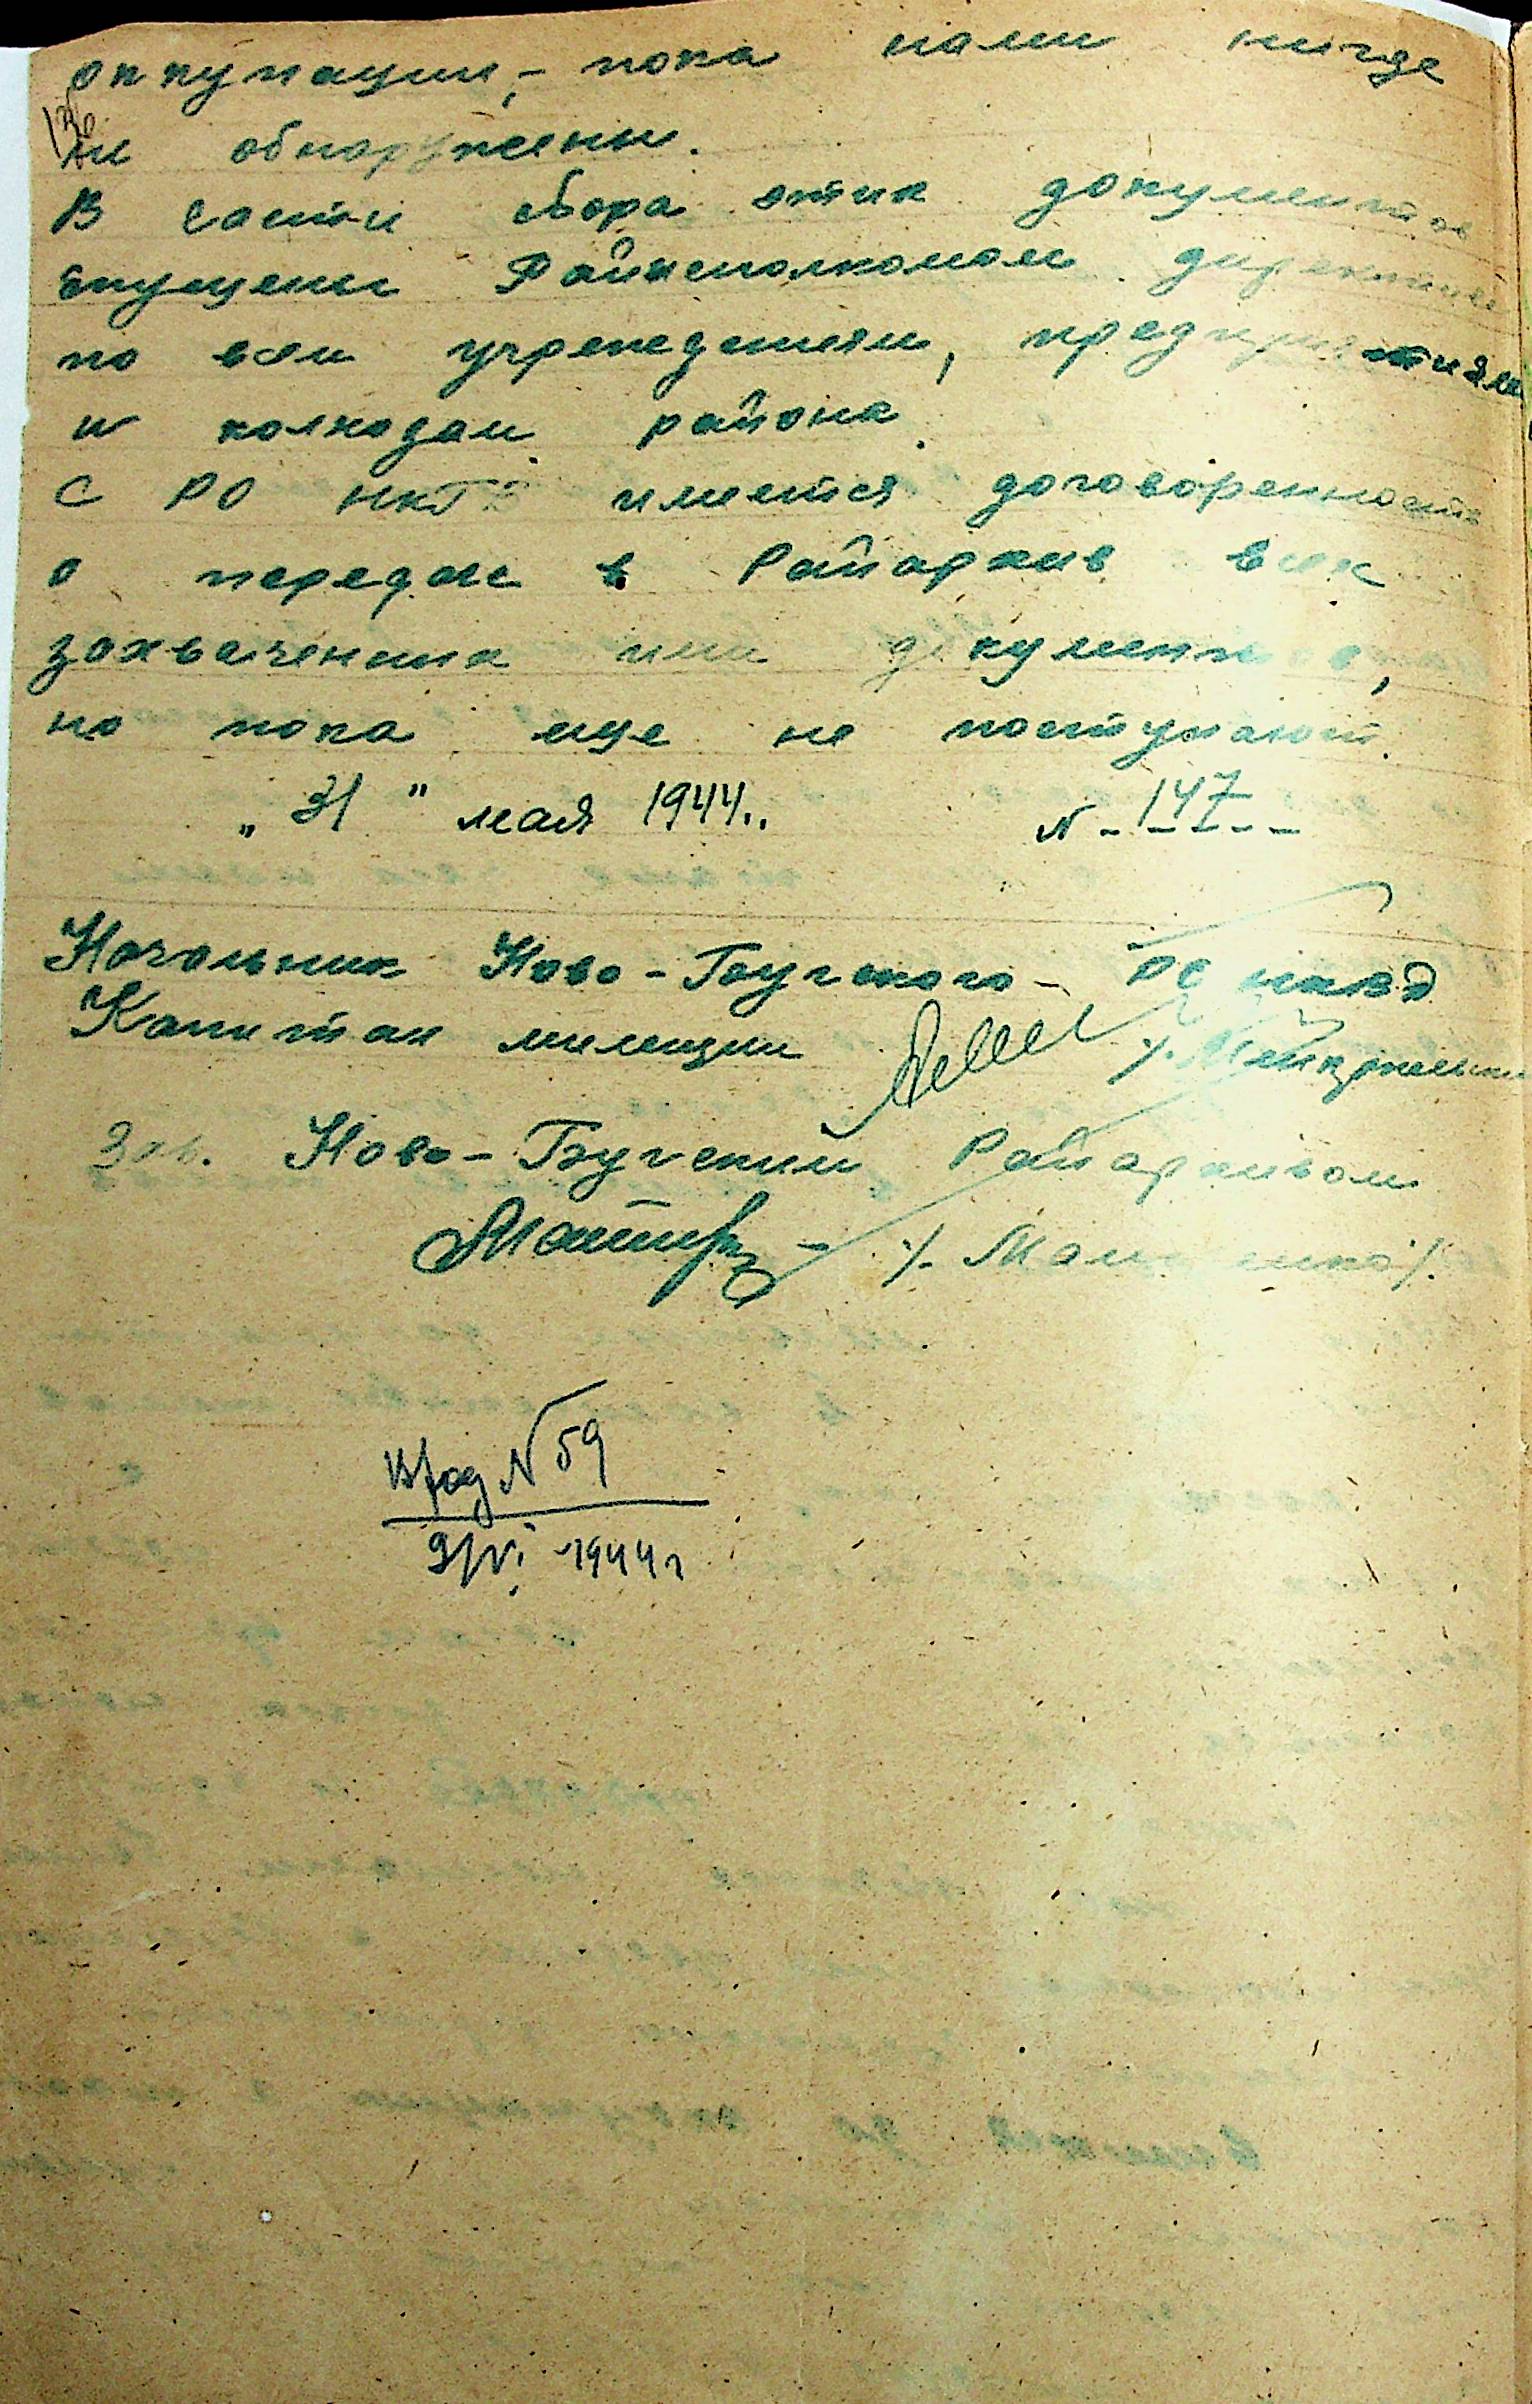 оккупации, - пока нами нигде
не обнаружены.
В части сбора этих документов
спущены Райисполкомом директивы
по всем учреждениям, предприятиям
и колхозам района.
С РО НКГБ имеется договоренность
о передаче в Райархив всех
захваченных ими документов,
но пока еще не поступают.
„31" мая 1944.. N - 147 - -
Начальник Ново-Бугского - РО НКВД
Капитан милиции
Зав. Ново-Бугским Райархивом
Вход N 59
9/VI - 1944 г